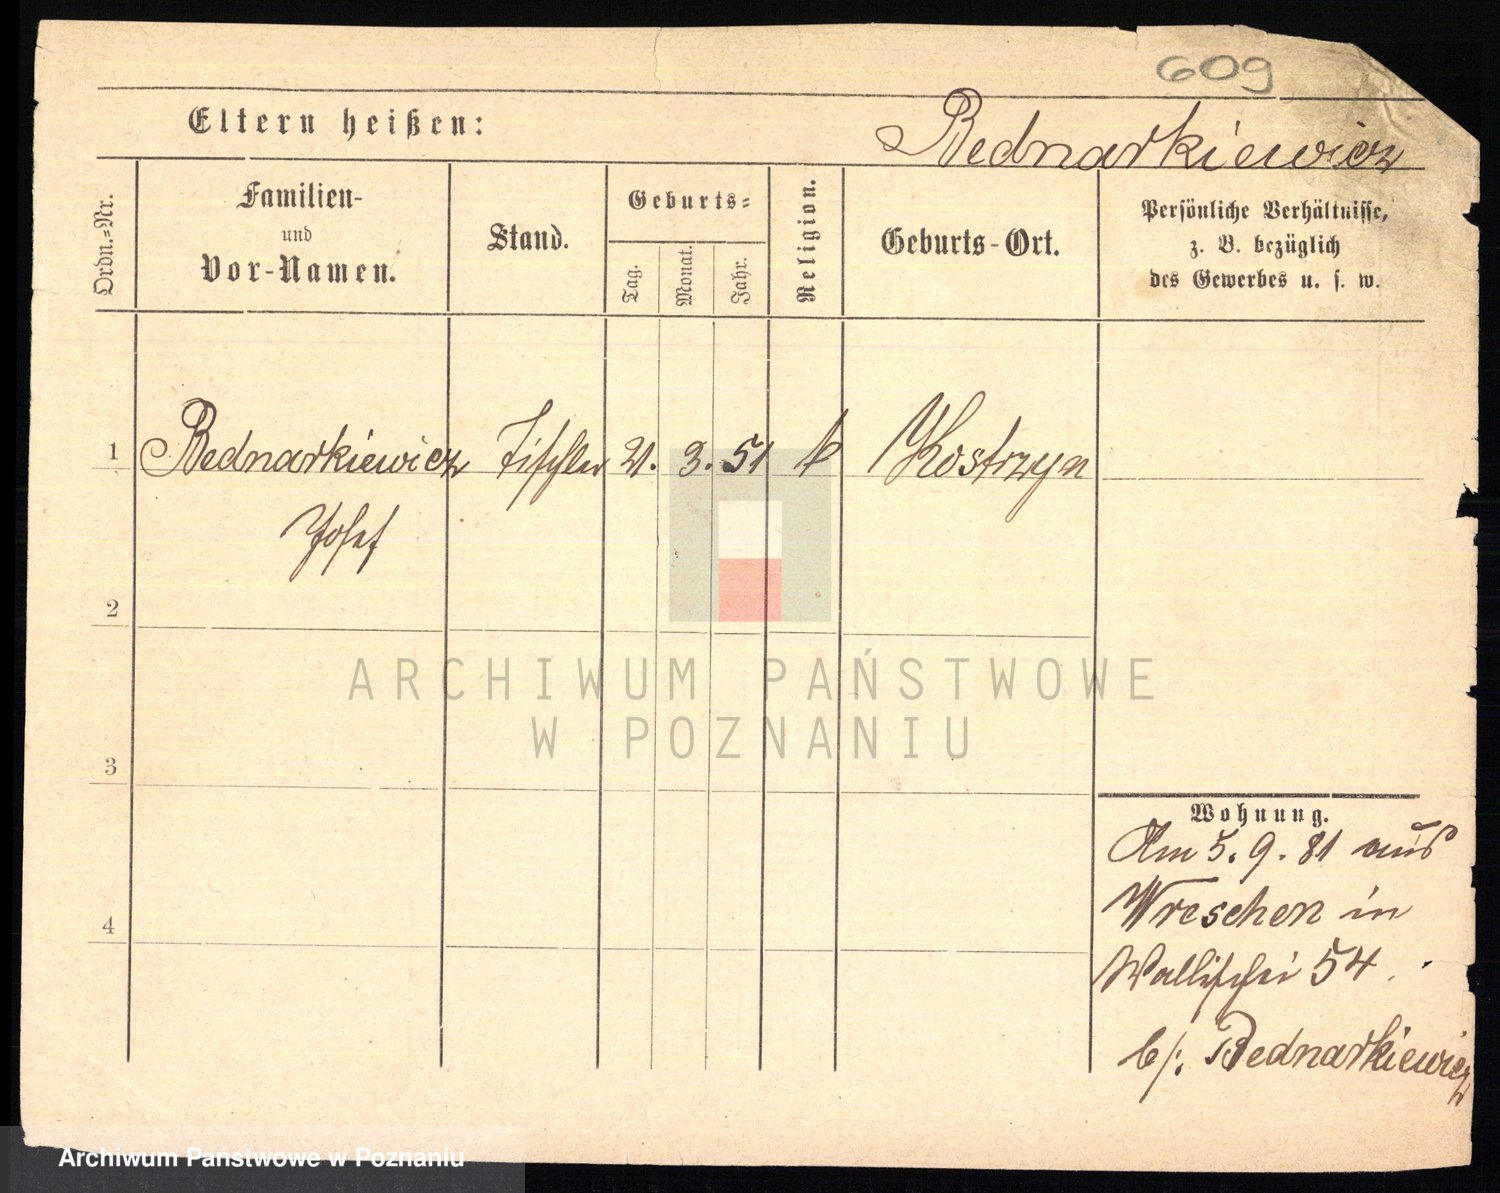 609
Eltern heißen:
Bednarkiewicz
Ordn.-Nr.
Familien-
und
Vor-Namen.
Stand.
Geburts-
Tag.
Monat.
Jahr.
Religion.
Geburts-Ort.
Persönliche Verhältnisse,
z. B. bezüglich
des Gewerbes u. s. w.
1 Bednarkiewicz Tischler 21. 3. 51 k Kostrzyn
Josef
2
3
4
Wohnung.
Am 5. 9. 81 aus
Wreschen in
Wallischei 54.
b/. Bednarkiewicz
ARCHIWUM PAŃSTWOWE
W POZNANIU
Archiwum Państwowe w Poznaniu